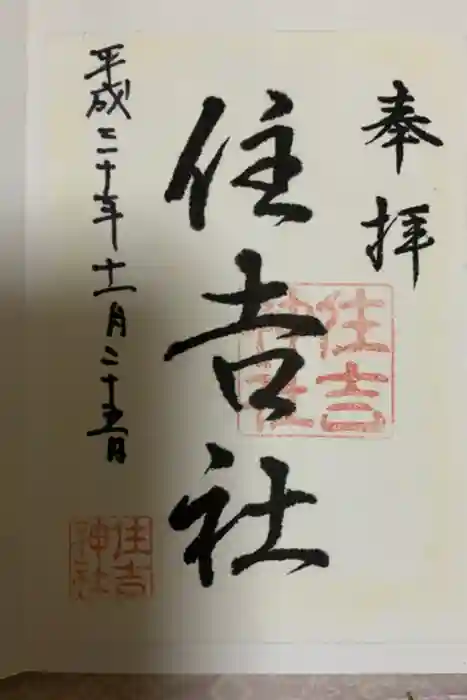 奉拝
住吉社
住吉神社
平成二十年十一月二十五日
住吉神社